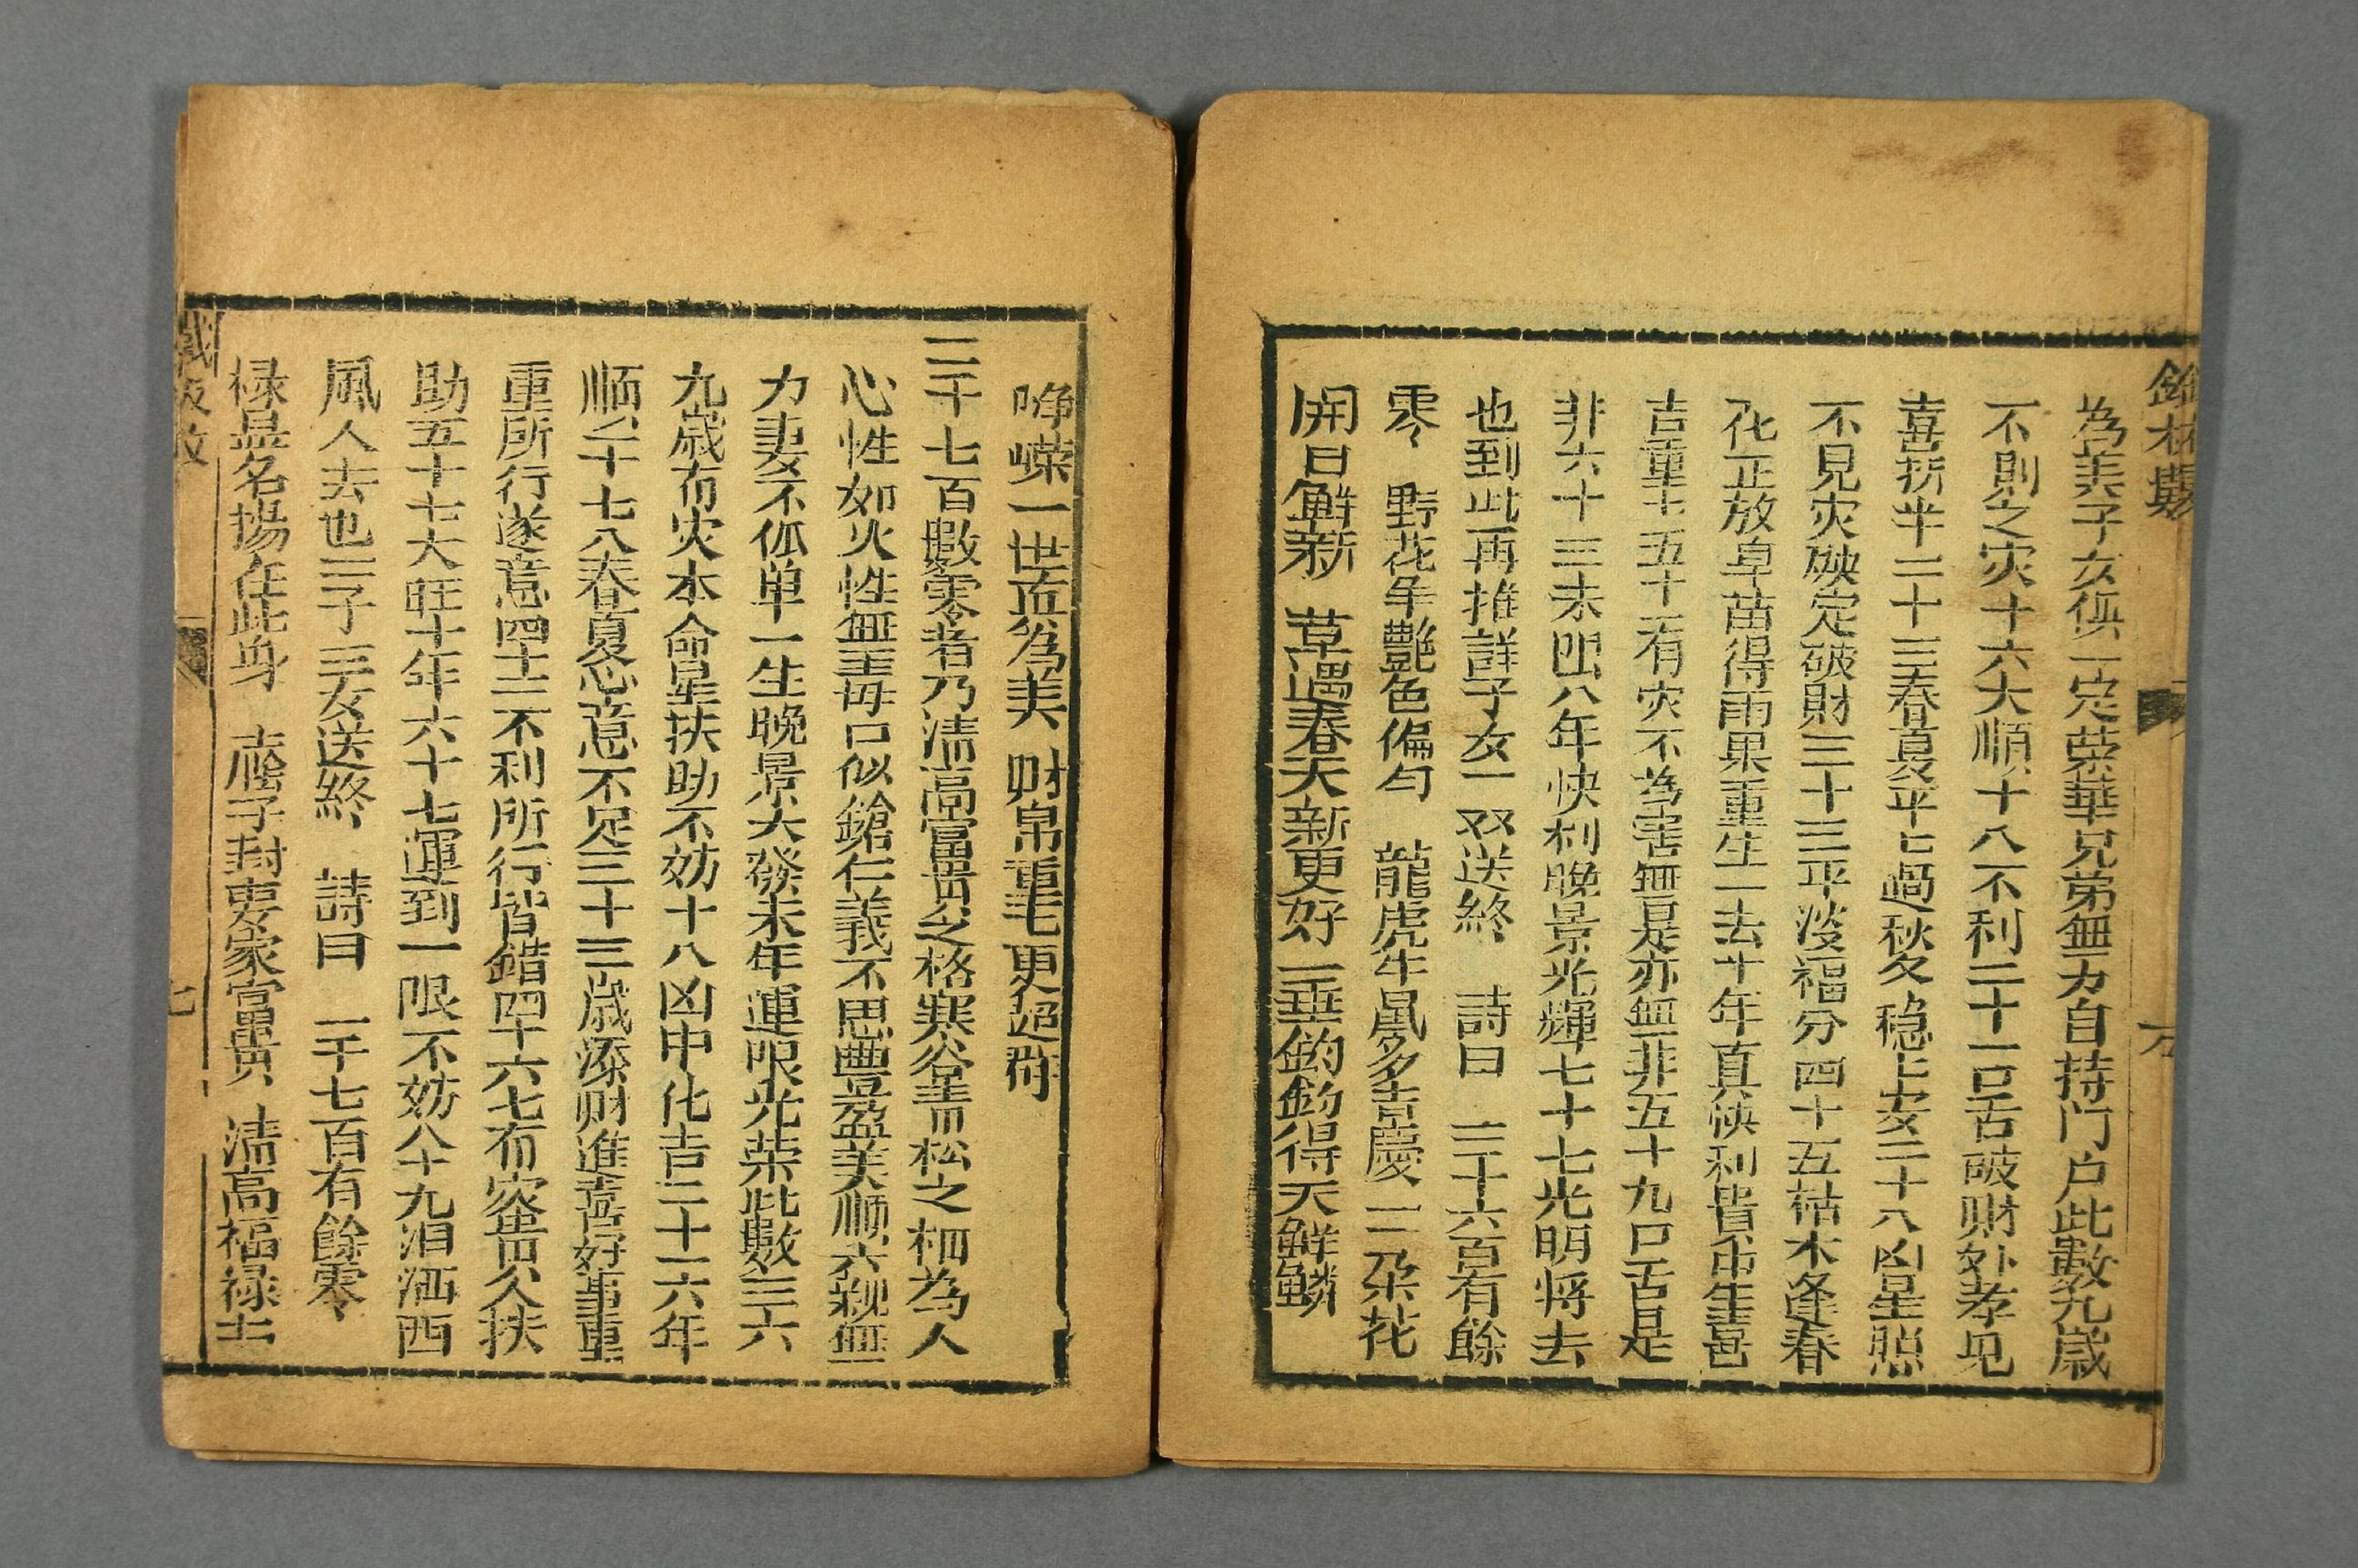 為美子女俱一定荣華兄弟無力自持门户此數九歳
不則之灾十六大順十八不利二十一口舌破财外孝見
喜折半二十三春夏平七過秋冬穏七安二十八凶星照
不見灾殃定破財三十三平淡福分四十五枯木逢春
花正放旱苗得雨果重生一去十年真快利貴中生喜
吉重七五十一有灾不為害無是亦無非五十九口舌是
非六十三未四八年快利晚景光輝七十七光明将去
也到此再推詳子女一双送終 詩曰 三千六百有餘
零 野花年艷色偏匀 龍虎牛鼠多吉慶 一朶花
開日觧新 草遇春天新更好 一垂釣釣得天鮮鱗
六
崢嶸一世並為美 财帛重七更超群
一千七百數零者乃清高富貴之格寒谷青松之栖為人
心性如火性無毒口似鎗仁義不思豊盈美順六親無
力妻不孤单一生晚景大發末年運限光荣此數三六
九歳有灾本命星扶助不妨十八凶中化吉二十一六年
順二十七八春夏心意不足三十三歳添财進喜好事重
重所行遂意四十二不利所行皆錯四十六七有灾貴人扶
助五十七大旺十年六十七運到一限不妨八十九泪洒西
風人去也二子三女送終 詩曰 一千七百有餘零
禄显名揚在此身 廕子封妻家富貴 清高福禄士
七